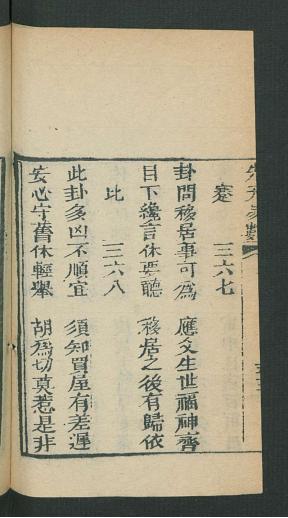 蹇 三六七
卦問移居事可為 應爻生世福神齊
目下纔言休要聽 移居之後有歸依
比 三六八
此卦多凶不順宜 須知買屋有差遲
安心守舊休輕舉 胡為切莫惹是非